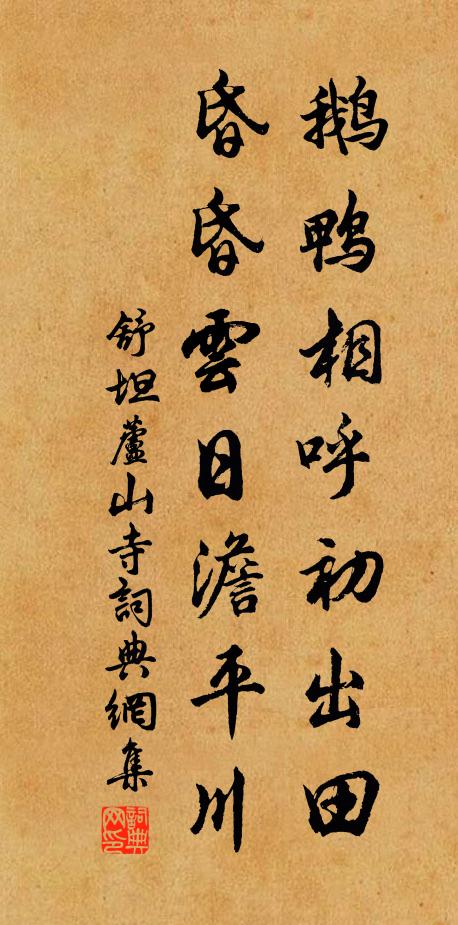 鵝鴨相呼初出田
昏昏雲日澹平川
舒坦蘆山寺詞典網集
詞典网印